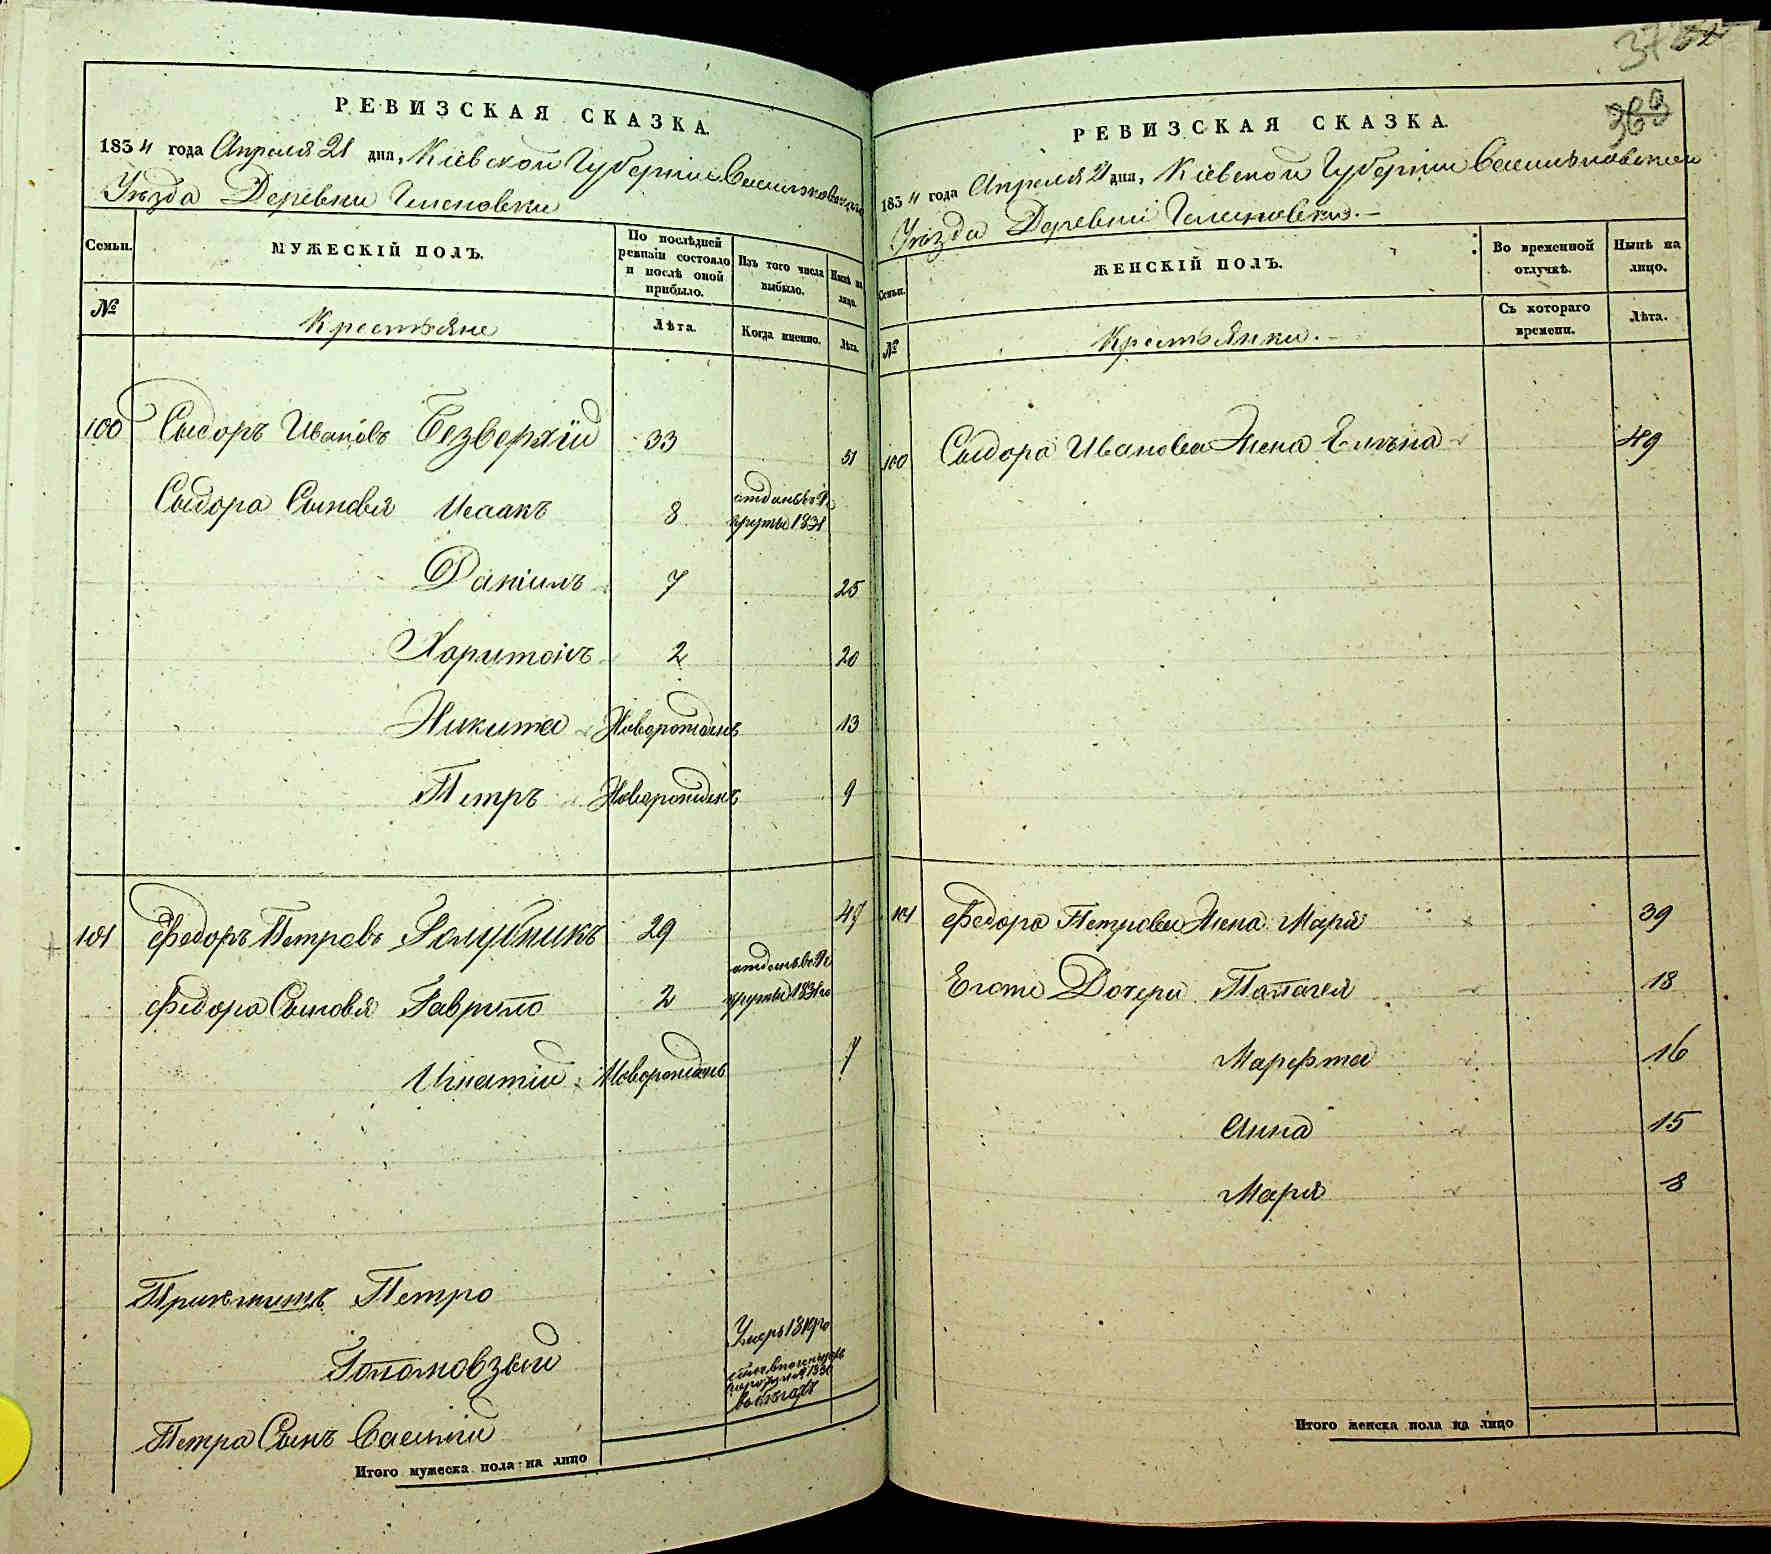 РЕВИЗСКАЯ СКАЗКА.
1834 года Апреля 21 дня, Кіевской Губерніи Васильковскаго
Уѣзда Деревни
Семьи.
МУЖЕСКІЙ ПОЛЪ.
По послѣдней ревизіи состояло и послѣ оной прибыло.
Изъ того числа выбыло.
Нынѣ на лицо.
№
Крестьяне
Лѣта.
Когда именно.
Лѣта.
100 Сыдоръ Ивановъ Безверхій 33 51
Сыдора Сыновья Исаакъ 8 отданъ въ Рекруты 1831
Даніилъ 7 25
Харитонъ 2 20
Никита Новорожденъ 13
Петръ Новорожденъ 9
101 Федоръ Петровъ Голубникъ 29 47
Федора Сыновья Гаврило 2 отданъ въ Рекруты 1831го
Игнатій Новорожденъ 7
Петро
Умеръ
Петра Сынъ Василій
Итого мужеска пола на лицо
37
369
РЕВИЗСКАЯ СКАЗКА.
1834 года Апреля 21 дня, Кіевской Губерніи Васильковскаго
Уѣзда Деревни
Семьи.
ЖЕНСКІЙ ПОЛЪ.
Во временной отлучкѣ.
Нынѣ на лицо.
№
Крестьянки.
Съ котораго времени.
Лѣта.
100 Сыдора Иванова Жена Елена 49
101 Федора Петрова Жена Марія 39
Егоже Дочери Палагея 18
Марфта 16
Анна 15
Марія 8
Итого женска пола на лицо